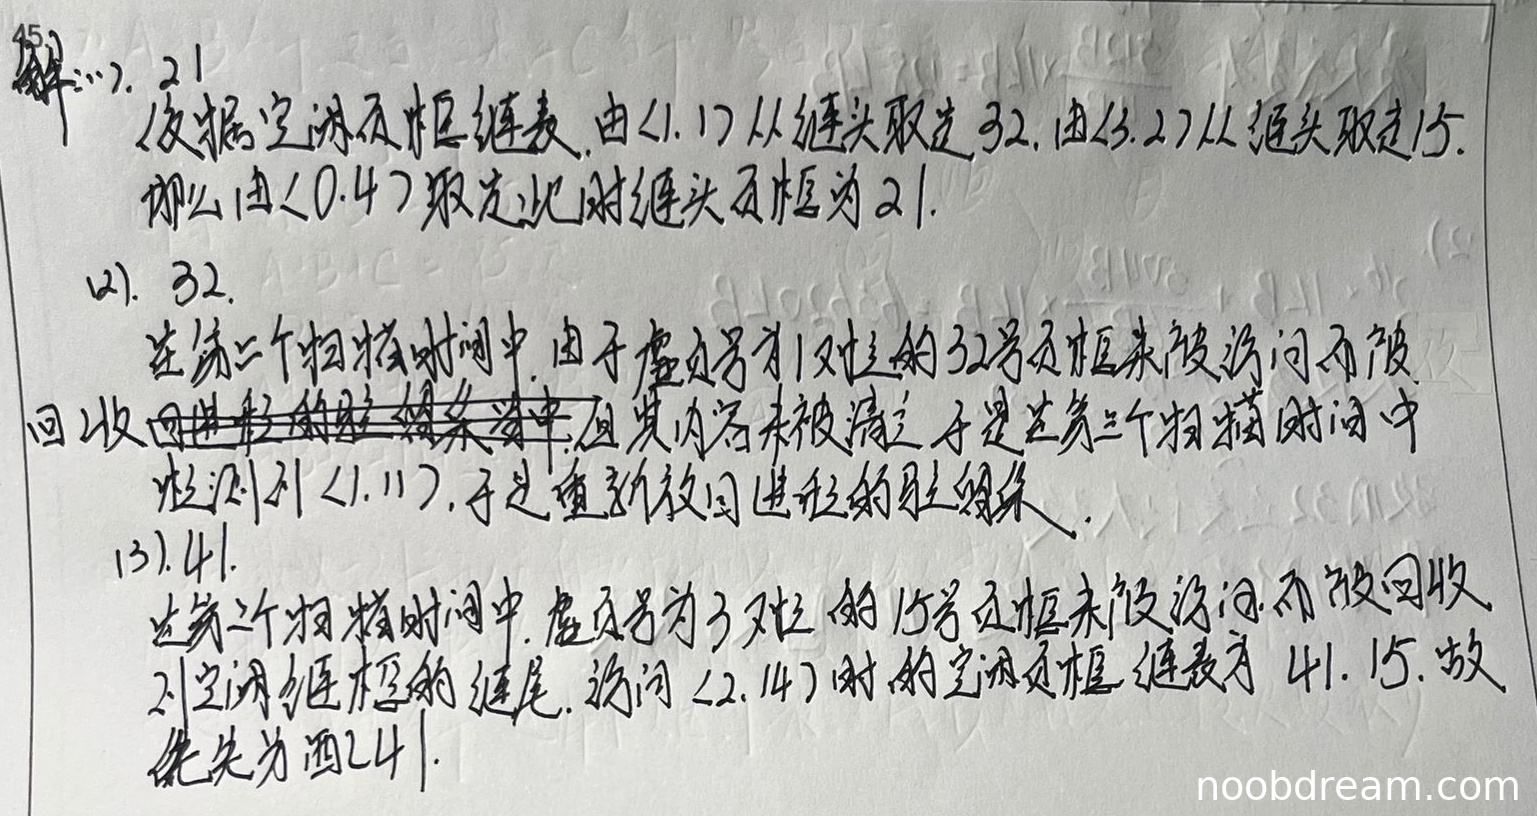 45.
解:(1). 21
依据空闲页框链表,由<1.1>从链头取走32,由<3.2>从链头取走15.
那么由<0.4>取走此时链头页框为21.
(2). 32.
在第二个扫描时间中,由于虚页号为1对应的32号页框未被访问而被
回收 但其内容未被清空 于是在第三个扫描时间中
检测到<1.11>,于是重新放回进程的驻留集.
(3).41.
在第二个扫描时间中,虚页号为3对应的15号页框未被访问而被回收
到空闲链框的链尾,访问<2.14>时的空闲页框链表为41.15.故
优先分配41.
noobdream.com